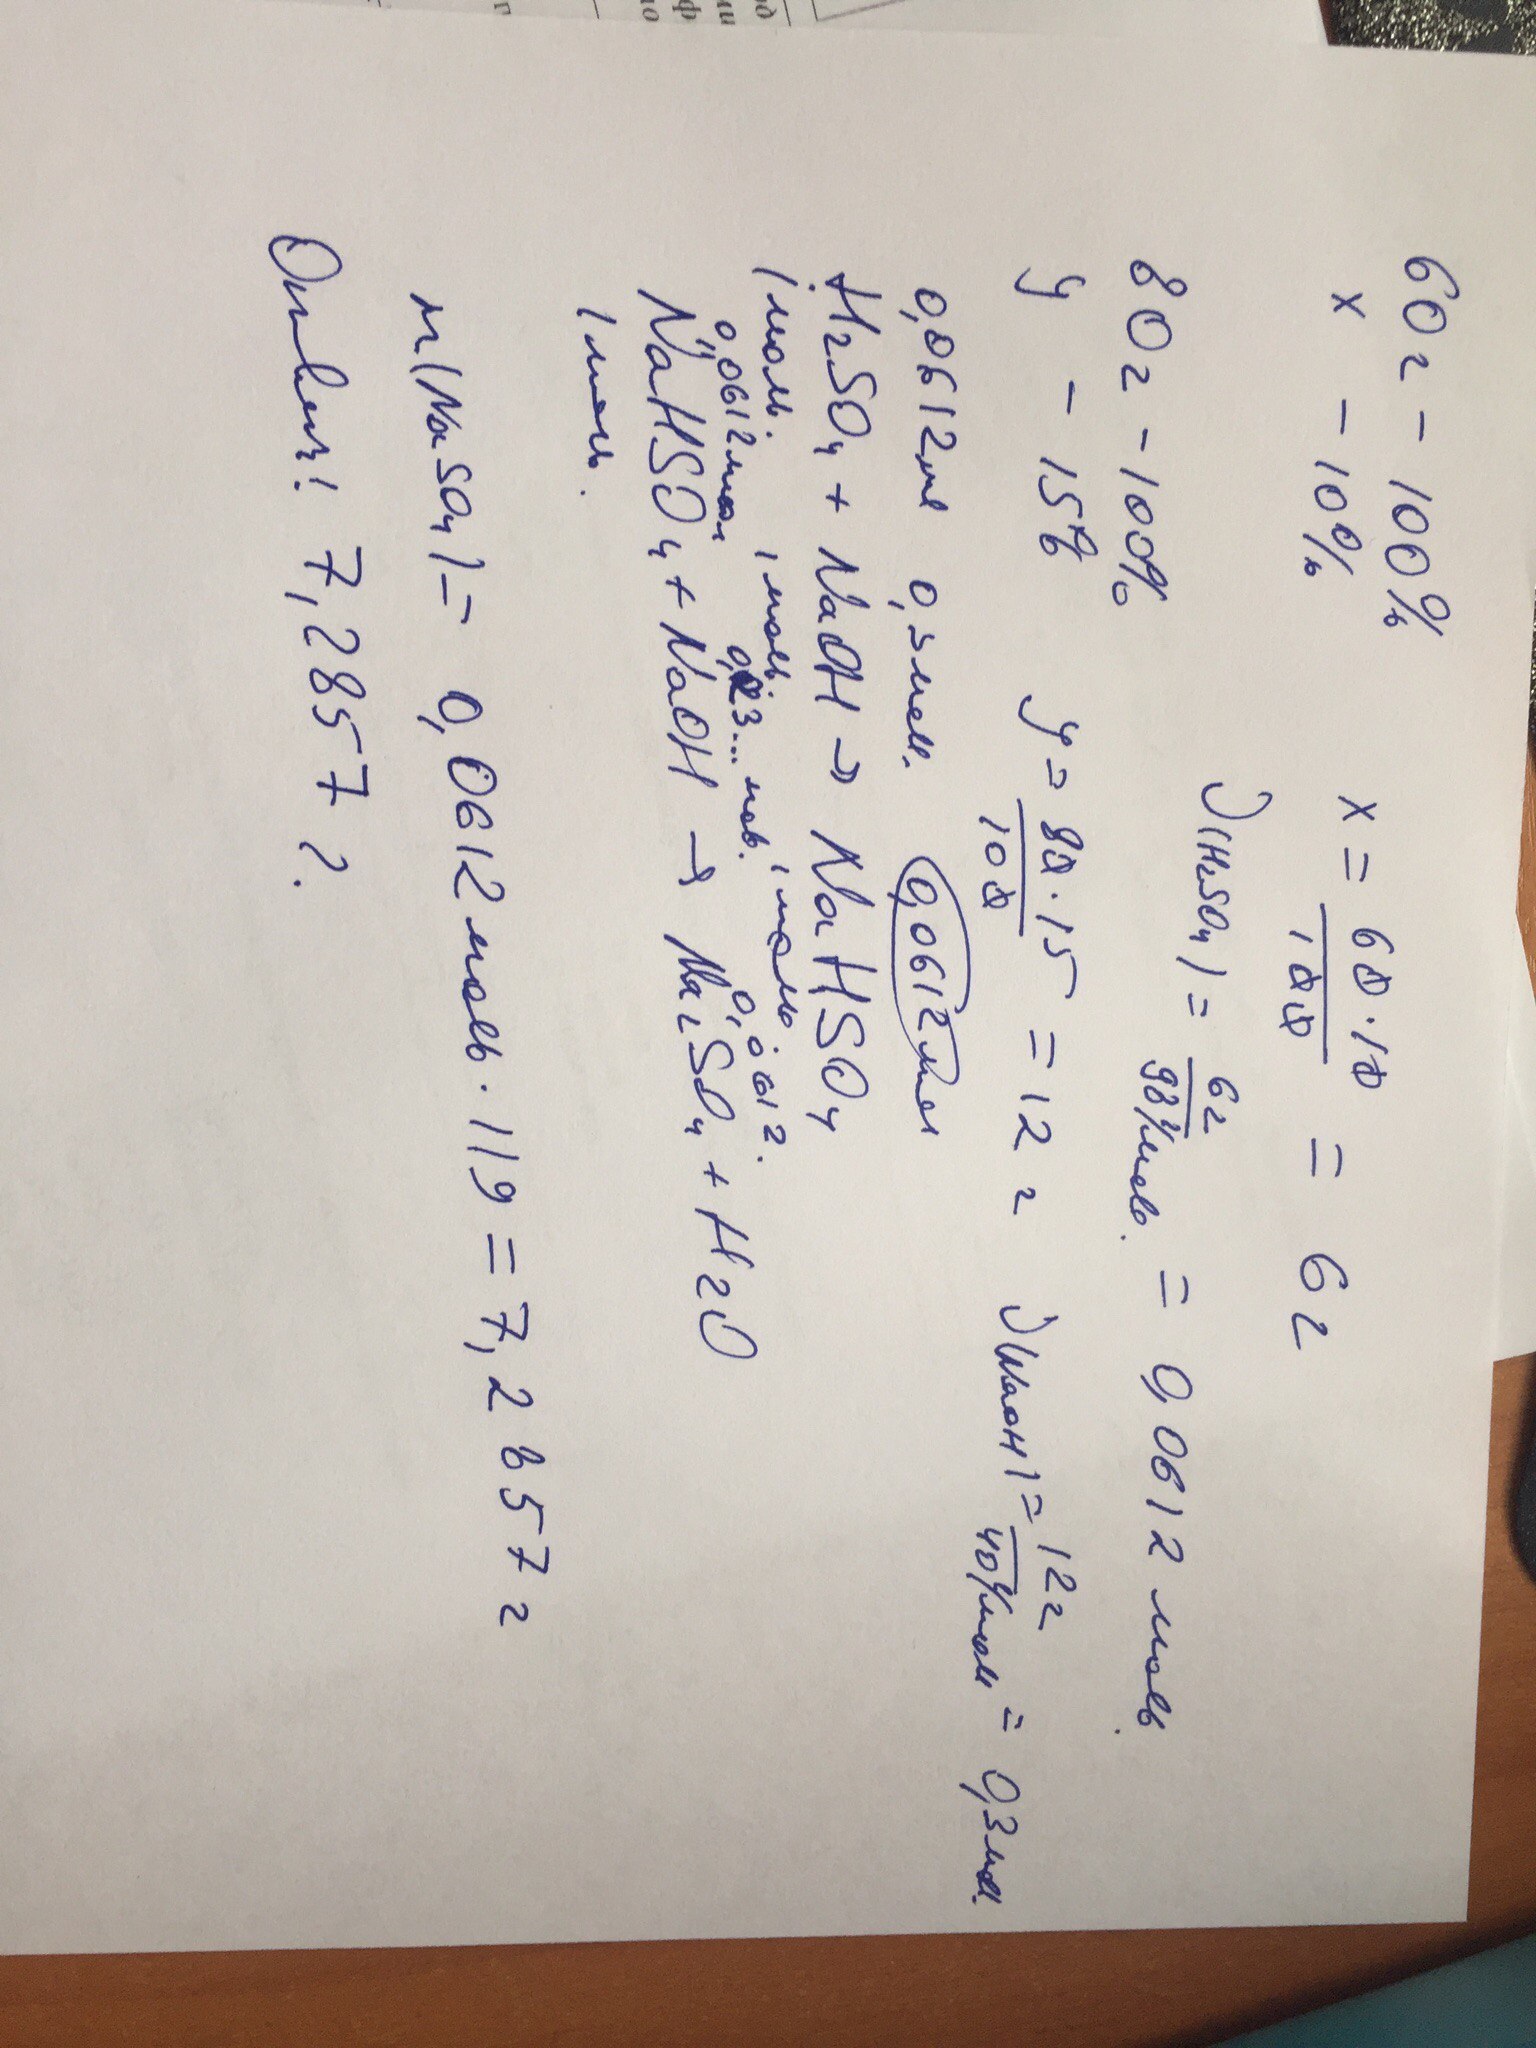 60 г – 100%
x – 10%
x = 60·10 / 100 = 6 г
ν(H₂SO₄) = 6г / 98 г/моль. = 0,0612 моль.
80 г – 100%
y – 15%
y = 80·15 / 100 = 12 г ν(NaOH) = 12г / 40 г/моль = 0,3 мол.
0,0612мол 0,3 мол. 0,0612мол
H₂SO₄ + NaOH → NaHSO₄
1 моль. 1 моль. 1 моль
0,0612мол 0,23... мол. 0,0612.
NaHSO₄ + NaOH → Na₂SO₄ + H₂O
1 моль.
m(NaSO₄) = 0,0612 моль · 119 = 7,2857 г
Ответ: 7,2857 г.